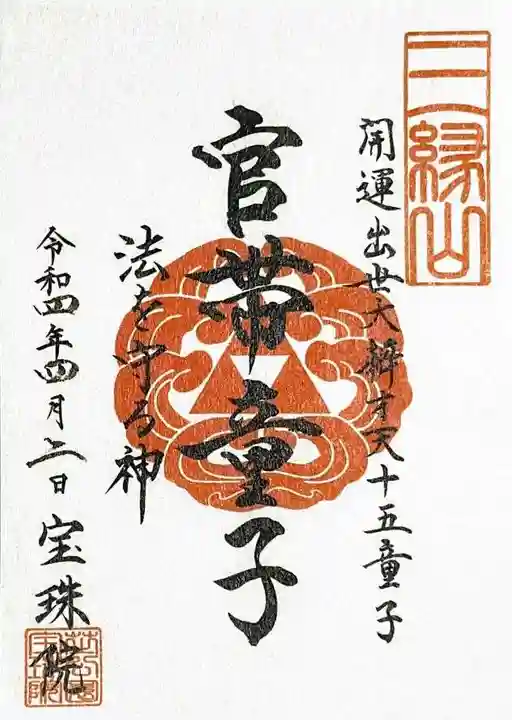 三縁山
開運出世大辨才天十五童子
官帯童子
法を守る神
令和四年四月二日 宝珠院